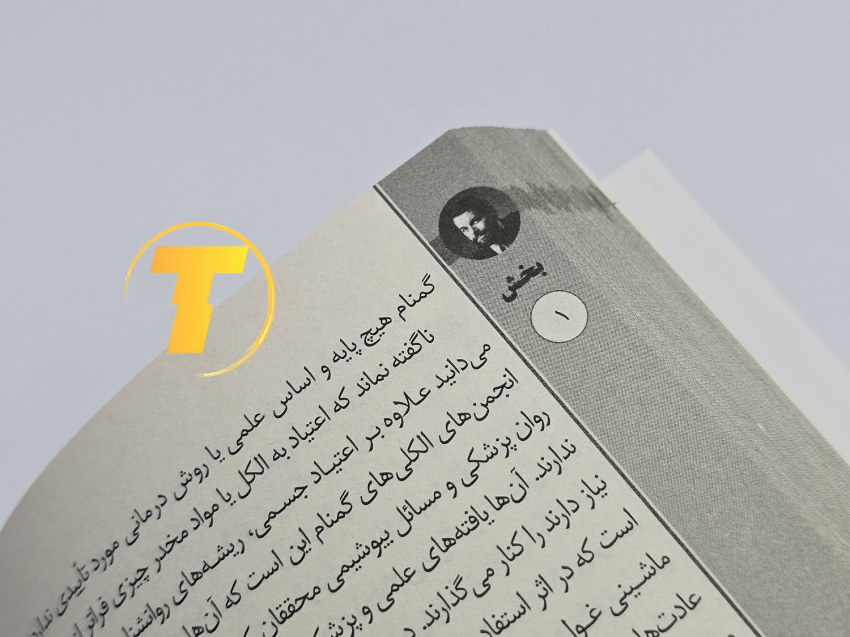 T
بخش
۱
گمنام هیچ پایه و اساس علمی یا روش درمانی مورد تأییدی ندارد
ناگفته نماند که اعتیاد به الکل یا مواد مخدر چیزی فراتر از
می‌دانید عـلاوه بـر اعتیـاد جسـمی، ریشـه‌های
انجمن‌های الکلی‌های گمنام این است که آن‌ها
روان پزشکی و مسائل بیوشیمی
ندارند. آن‌ها یافته‌های علمی و
نیاز دارند را کنار می گذارند.
است که در اثر
ماشـینی